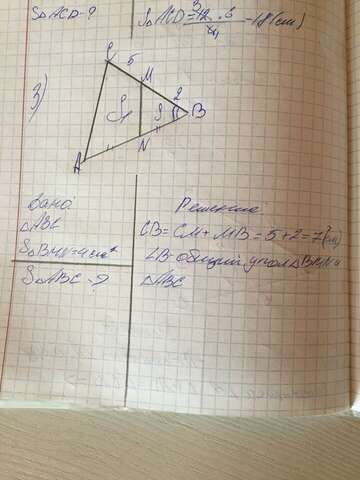 S△ACD-?
S△ACD = 12·6 = 18 (см)
3)
C
5
M
2
B
S₁
S
A
N
Дано
△ABC
S△BMN=4см²
S△ABC-?
Решение
CB= CM + MB = 5+2=7(см)
∠B-общий угол △BMN и
△ABC